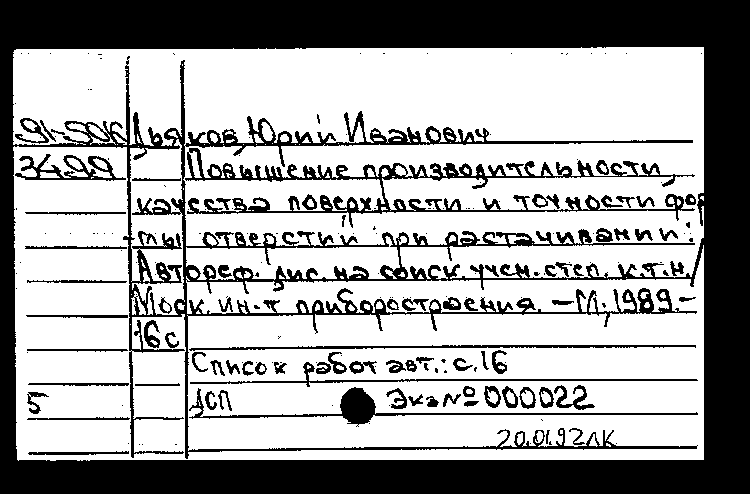 91-506 Дьяков, Юрий Иванович
3499 Повышение производительности,
качества поверхности и точности фор
-мы отверстий при растачивании:
Автореф. дис. на соиск. учен. степ. к.т.н. /
Моск. ин-т приборостроения. -М., 1989.-
16с
Список работ авт.: с.16
5 ДСП Экз № 000022
20.01.92ЛК